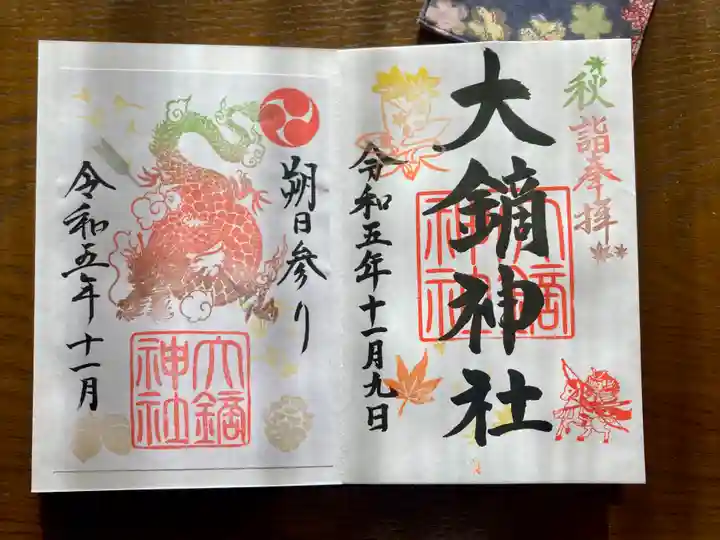 秋詣奉拝
大鏑神社
大鏑神社
令和五年十一月九日
朔日参り
令和五年十一月
大鏑神社